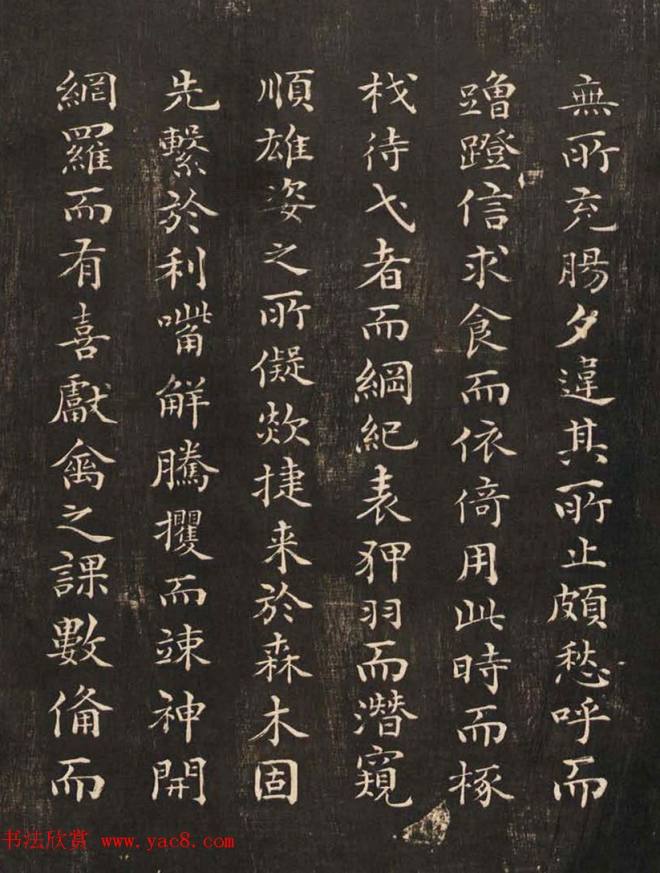 無所充腸夕違其所止頗愁呼而
蹭蹬信求食而依倚用此時而椓
杙待弋者而綱紀表狎羽而潛窺
順雄姿之所儗欻捷来於森木固
先繫於利觜解騰攫而竦神開
網羅而有喜獻禽之課數俻而
书法欣赏 www.yac8.com